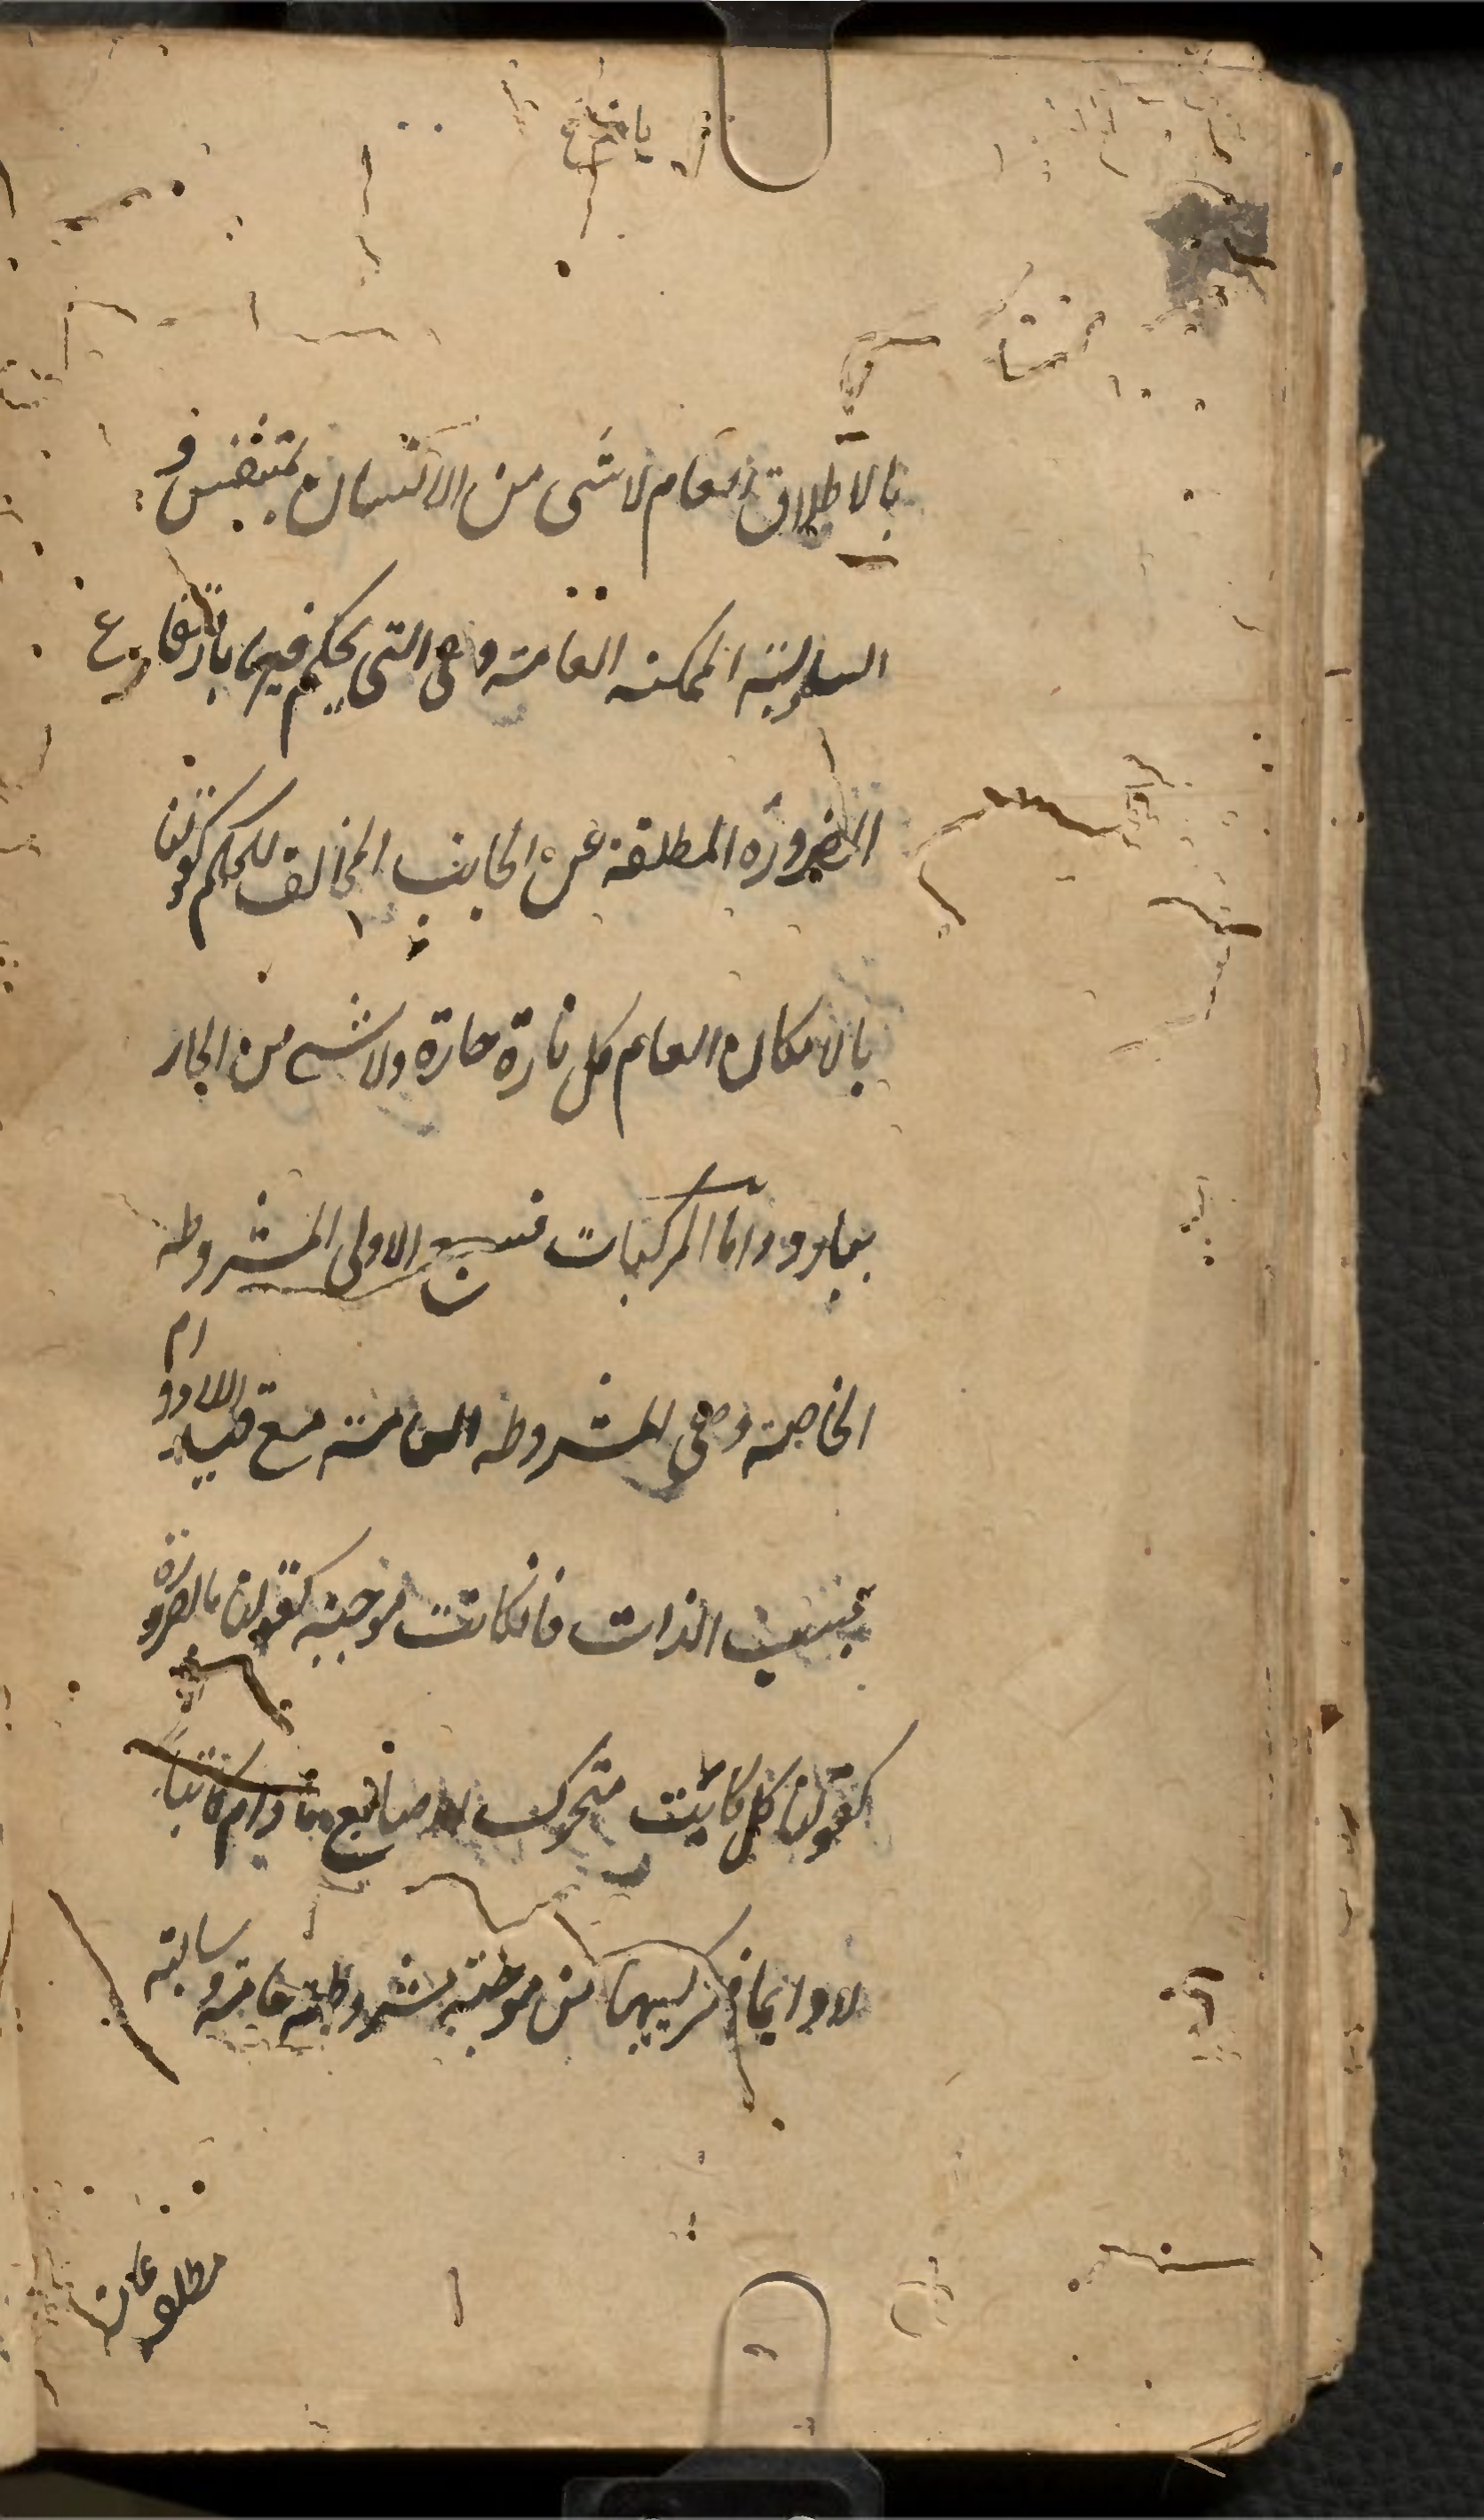 بالاطلاق العام لا شى من الانسان بمتنفس و
السادسة الممكنه العامة وهى التى يحكم فيها بارتفاع
الضرورة المطلقة عن الجانب المخالف للحكم كقولنا
بالامكان العام كل نارة حارة ولا شى من الحار
ببارد واما المركبات فسبع الاولى المشروطه
الخاصة وهى المشروطه العامة مع قيد اللادوام
بحسب الذات فانكانت موجبة كقولنا بالضرورة
كقولنا كل كاتب متحرك الاصابع مادام كاتبا
لا دايما فتركيبها من موجبة مشروطة عامة وسالبة
مطلقة عامة